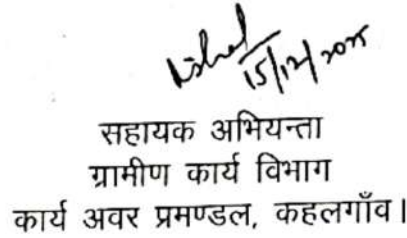 15/12/2025
सहायक अभियन्ता
ग्रामीण कार्य विभाग
कार्य अवर प्रमण्डल, कहलगाँव।